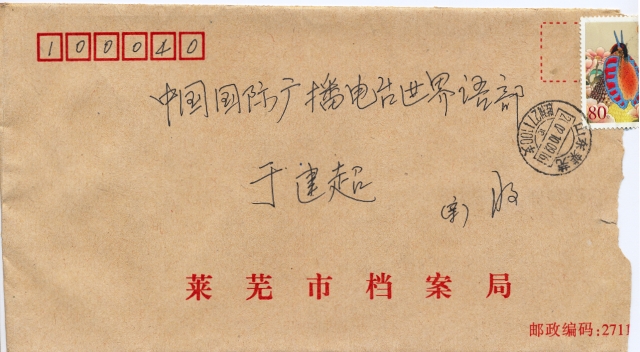 100040
中国国际广播电台世界语部
80
于建超
收
莱芜市档案局
邮政编码:2711